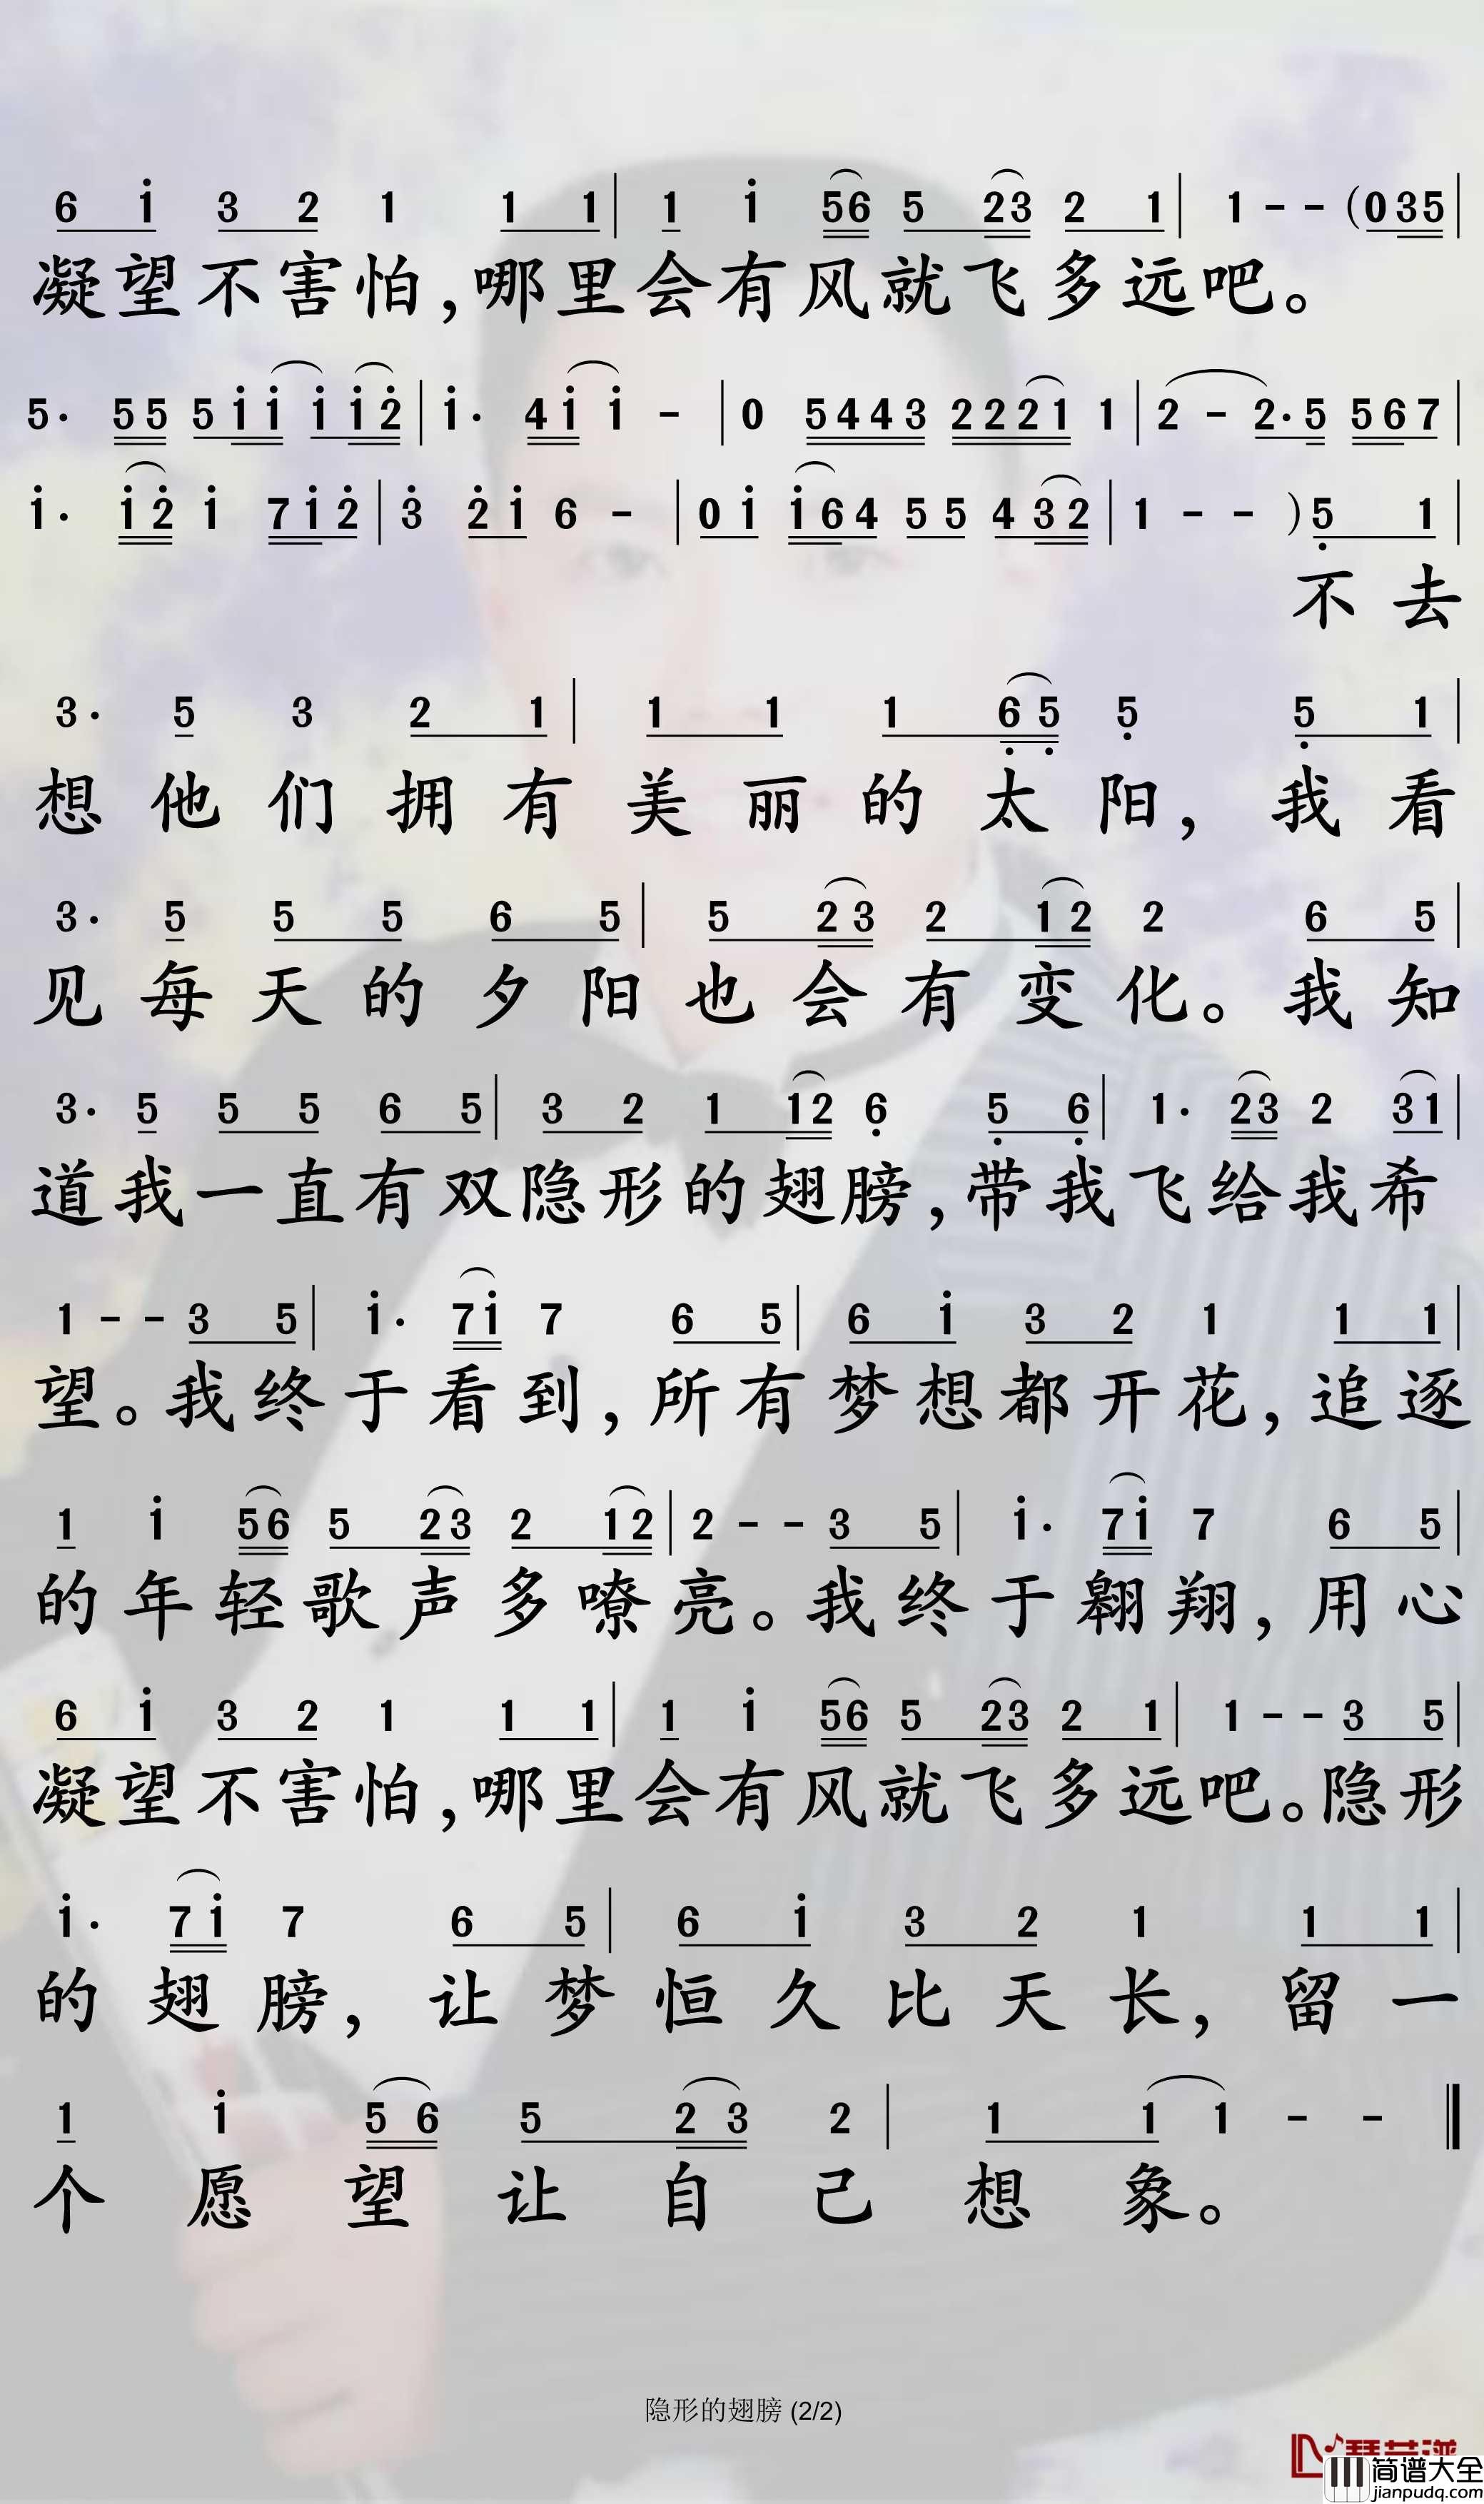 6 i 3 2 1 1 1 | 1 i 56 5 23 2 1 | 1 - - (035 |
凝望不害怕,哪里会有风就飞多远吧。
5· 55 5ii ii2 | i· 4i i - | 0 5443 2221 1 | 2 - 2·5 567 |
i· i2 i 7i2 | 3 2i 6 - | 0i i64 55 432 | 1 - - )5 1 |
不去
3· 5 3 2 1 | 1 1 1 65 5 5 1 |
想他们拥有美丽的太阳,我看
3· 5 5 5 6 5 | 5 23 2 12 2 6 5 |
见每天的夕阳也会有变化。我知
3· 5 5 5 6 5 | 3 2 1 12 6 5 6 | 1· 23 2 31 |
道我一直有双隐形的翅膀,带我飞给我希
1 - - 3 5 | i· 7i 7 6 5 | 6 i 3 2 1 1 1 |
望。我终于看到,所有梦想都开花,追逐
1 i 56 5 23 2 12 | 2 - - 3 5 | i· 7i 7 6 5 |
的年轻歌声多嘹亮。我终于翱翔,用心
6 i 3 2 1 1 1 | 1 i 56 5 23 2 1 | 1 - - 3 5 |
凝望不害怕,哪里会有风就飞多远吧。隐形
i· 7i 7 6 5 | 6 i 3 2 1 1 1 |
的翅膀,让梦恒久比天长,留一
1 i 56 5 23 2 | 1 1 1 - - ‖
个愿望让自己想象。
隐形的翅膀 (2/2)
简谱大全
jianpudq.com